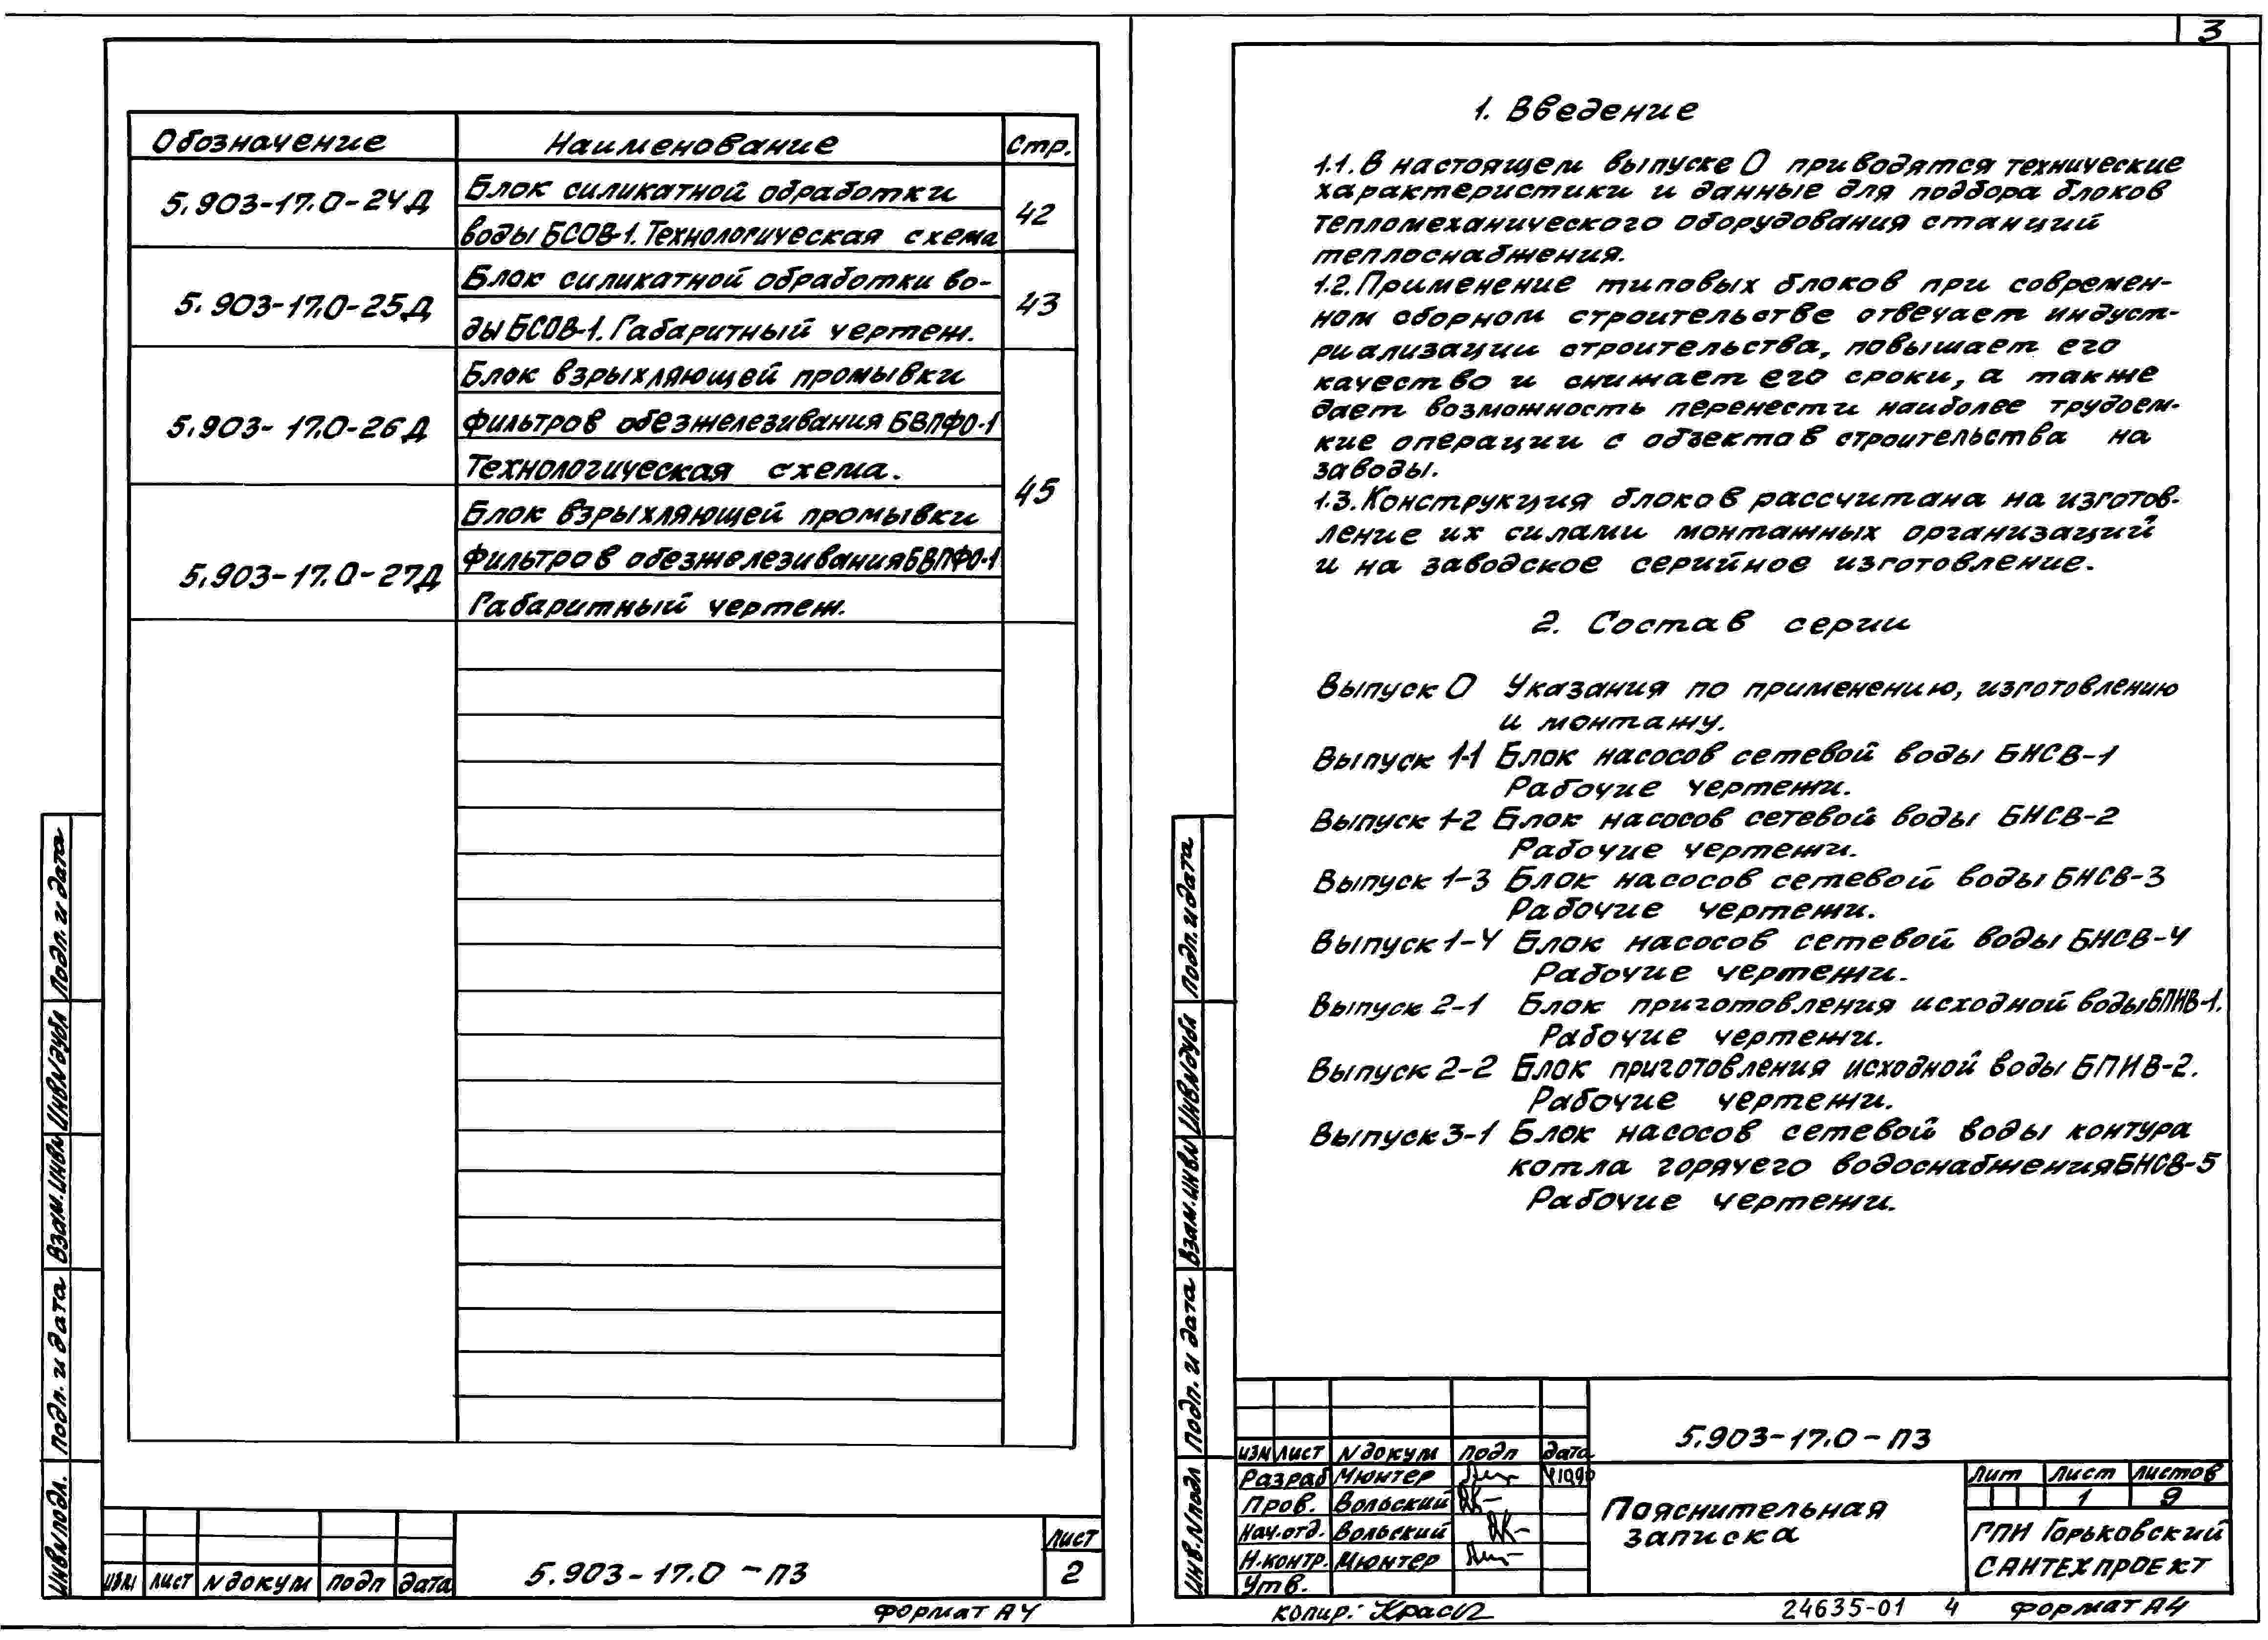 3
Обозначение Наименование Стр.
5.903-17.0-24Д Блок силикатной обработки
воды БСОВ-1. Технологическая схема 42
5.903-17.0-25Д Блок силикатной обработки во-
ды БСОВ-1. Габаритный чертеж. 43
Блок взрыхляющей промывки
5.903-17.0-26Д фильтров обезжелезивания БВПФО-1
Технологическая схема.
45
Блок взрыхляющей промывки
5.903-17.0-27Д фильтров обезжелезивания БВПФО-1
Габаритный чертеж.
Инв N подл. Подп. и дата Взам. инв N Инв N дубл Подп. и дата
изм лист N докум подп дата
5.903-17.0-ПЗ
лист
2
формат А4
1. Введение
1.1. В настоящем выпуске 0 приводятся технические
характеристики и данные для подбора блоков
тепломеханического оборудования станций
теплоснабжения.
1.2. Применение типовых блоков при современ-
ном сборном строительстве отвечает индуст-
риализации строительства, повышает его
качество и снижает его сроки, а также
дает возможность перенести наиболее трудоем-
кие операции с объектов строительства на
заводы.
1.3. Конструкция блоков рассчитана на изготов-
ление их силами монтажных организаций
и на заводское серийное изготовление.
2. Состав серии
Выпуск 0 Указания по применению, изготовлению
и монтажу.
Выпуск 1-1 Блок насосов сетевой воды БНСВ-1
Рабочие чертежи.
Выпуск 1-2 Блок насосов сетевой воды БНСВ-2
Рабочие чертежи.
Выпуск 1-3 Блок насосов сетевой воды БНСВ-3
Рабочие чертежи.
Выпуск 1-4 Блок насосов сетевой воды БНСВ-4
Рабочие чертежи.
Выпуск 2-1 Блок приготовления исходной воды БПИВ-1.
Рабочие чертежи.
Выпуск 2-2 Блок приготовления исходной воды БПИВ-2.
Рабочие чертежи.
Выпуск 3-1 Блок насосов сетевой воды контура
котла горячего водоснабжения БНСВ-5
Рабочие чертежи.
Инв. N подл Подп. и дата Взам. инв N Инв N дубл Подп. и дата
5.903-17.0-ПЗ
изм лист N докум подп дата
Разраб Мюнтер
Пров. Вольский
Нач.отд. Вольский
Н.контр. Мюнтер
Утв.
Пояснительная
записка
Лит Лист Листов
1 9
ГПИ Горьковский
САНТЕХПРОЕКТ
копир.:
24635-01 4
формат А4